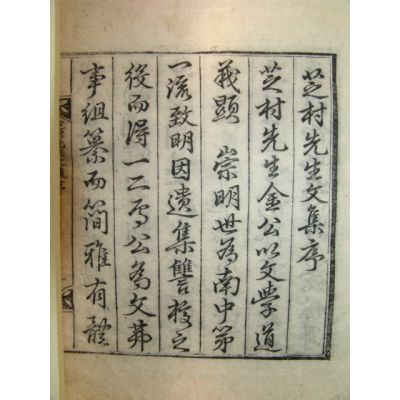 芝村先生文集序
芝村先生金公以文學道
義顯 崇明世為南中第
一流致明因遺集讐挍之
役而得一二焉公為文弗
事組纂而簡雅有體